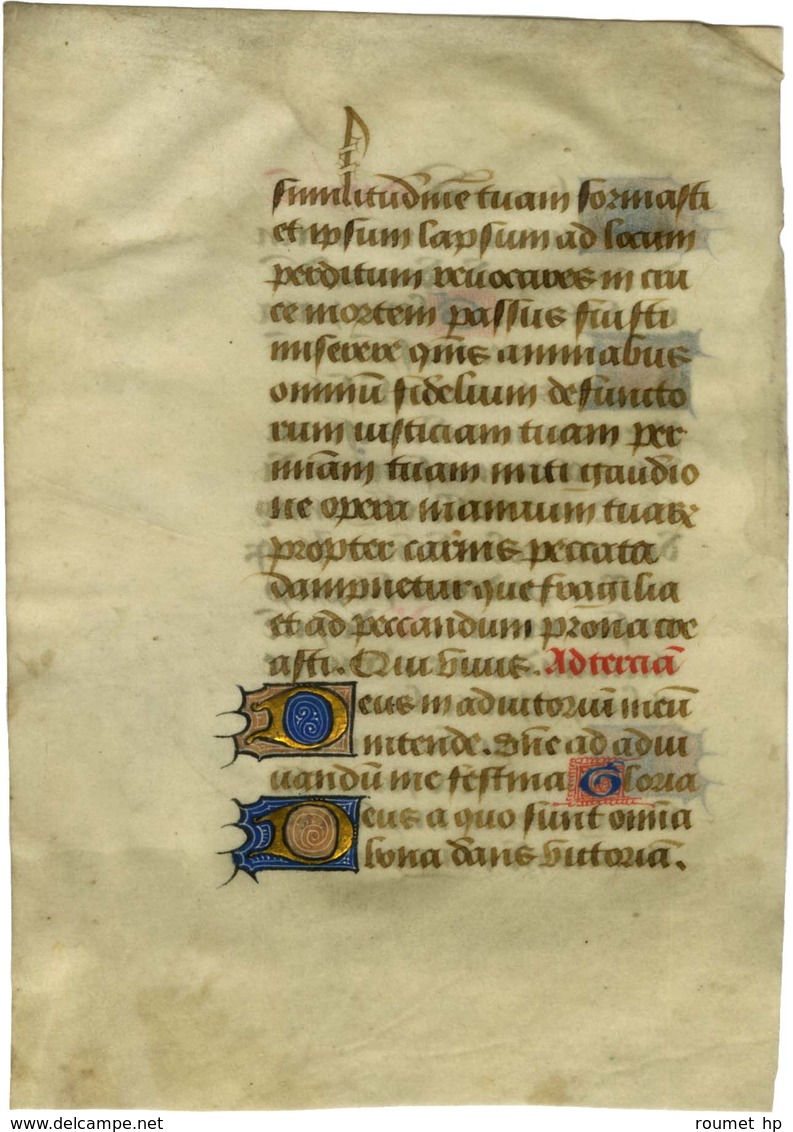 similitudinē tuam formasti
et ipsum lapsum ad locum
perditum reuocares in cru
ce mortem passus fuisti
miserere qm̄s animabus
omniū fidelium defuncto
rum iusticiam tuam per
miā̄m tuam miti gaudio
ne opera manuum tuarꝝ
propter carnis peccata
dampnetur que fragilia
et ad peccandum prona cre
asti. Qui viuis. Ad terciā
Deus in adiutoriū meū
intende. Dn̄e ad adiu
uandū me festina Gloria
Deus a quo sunt omīa
bona dans victoriā.
delcampe.net
roumet hp